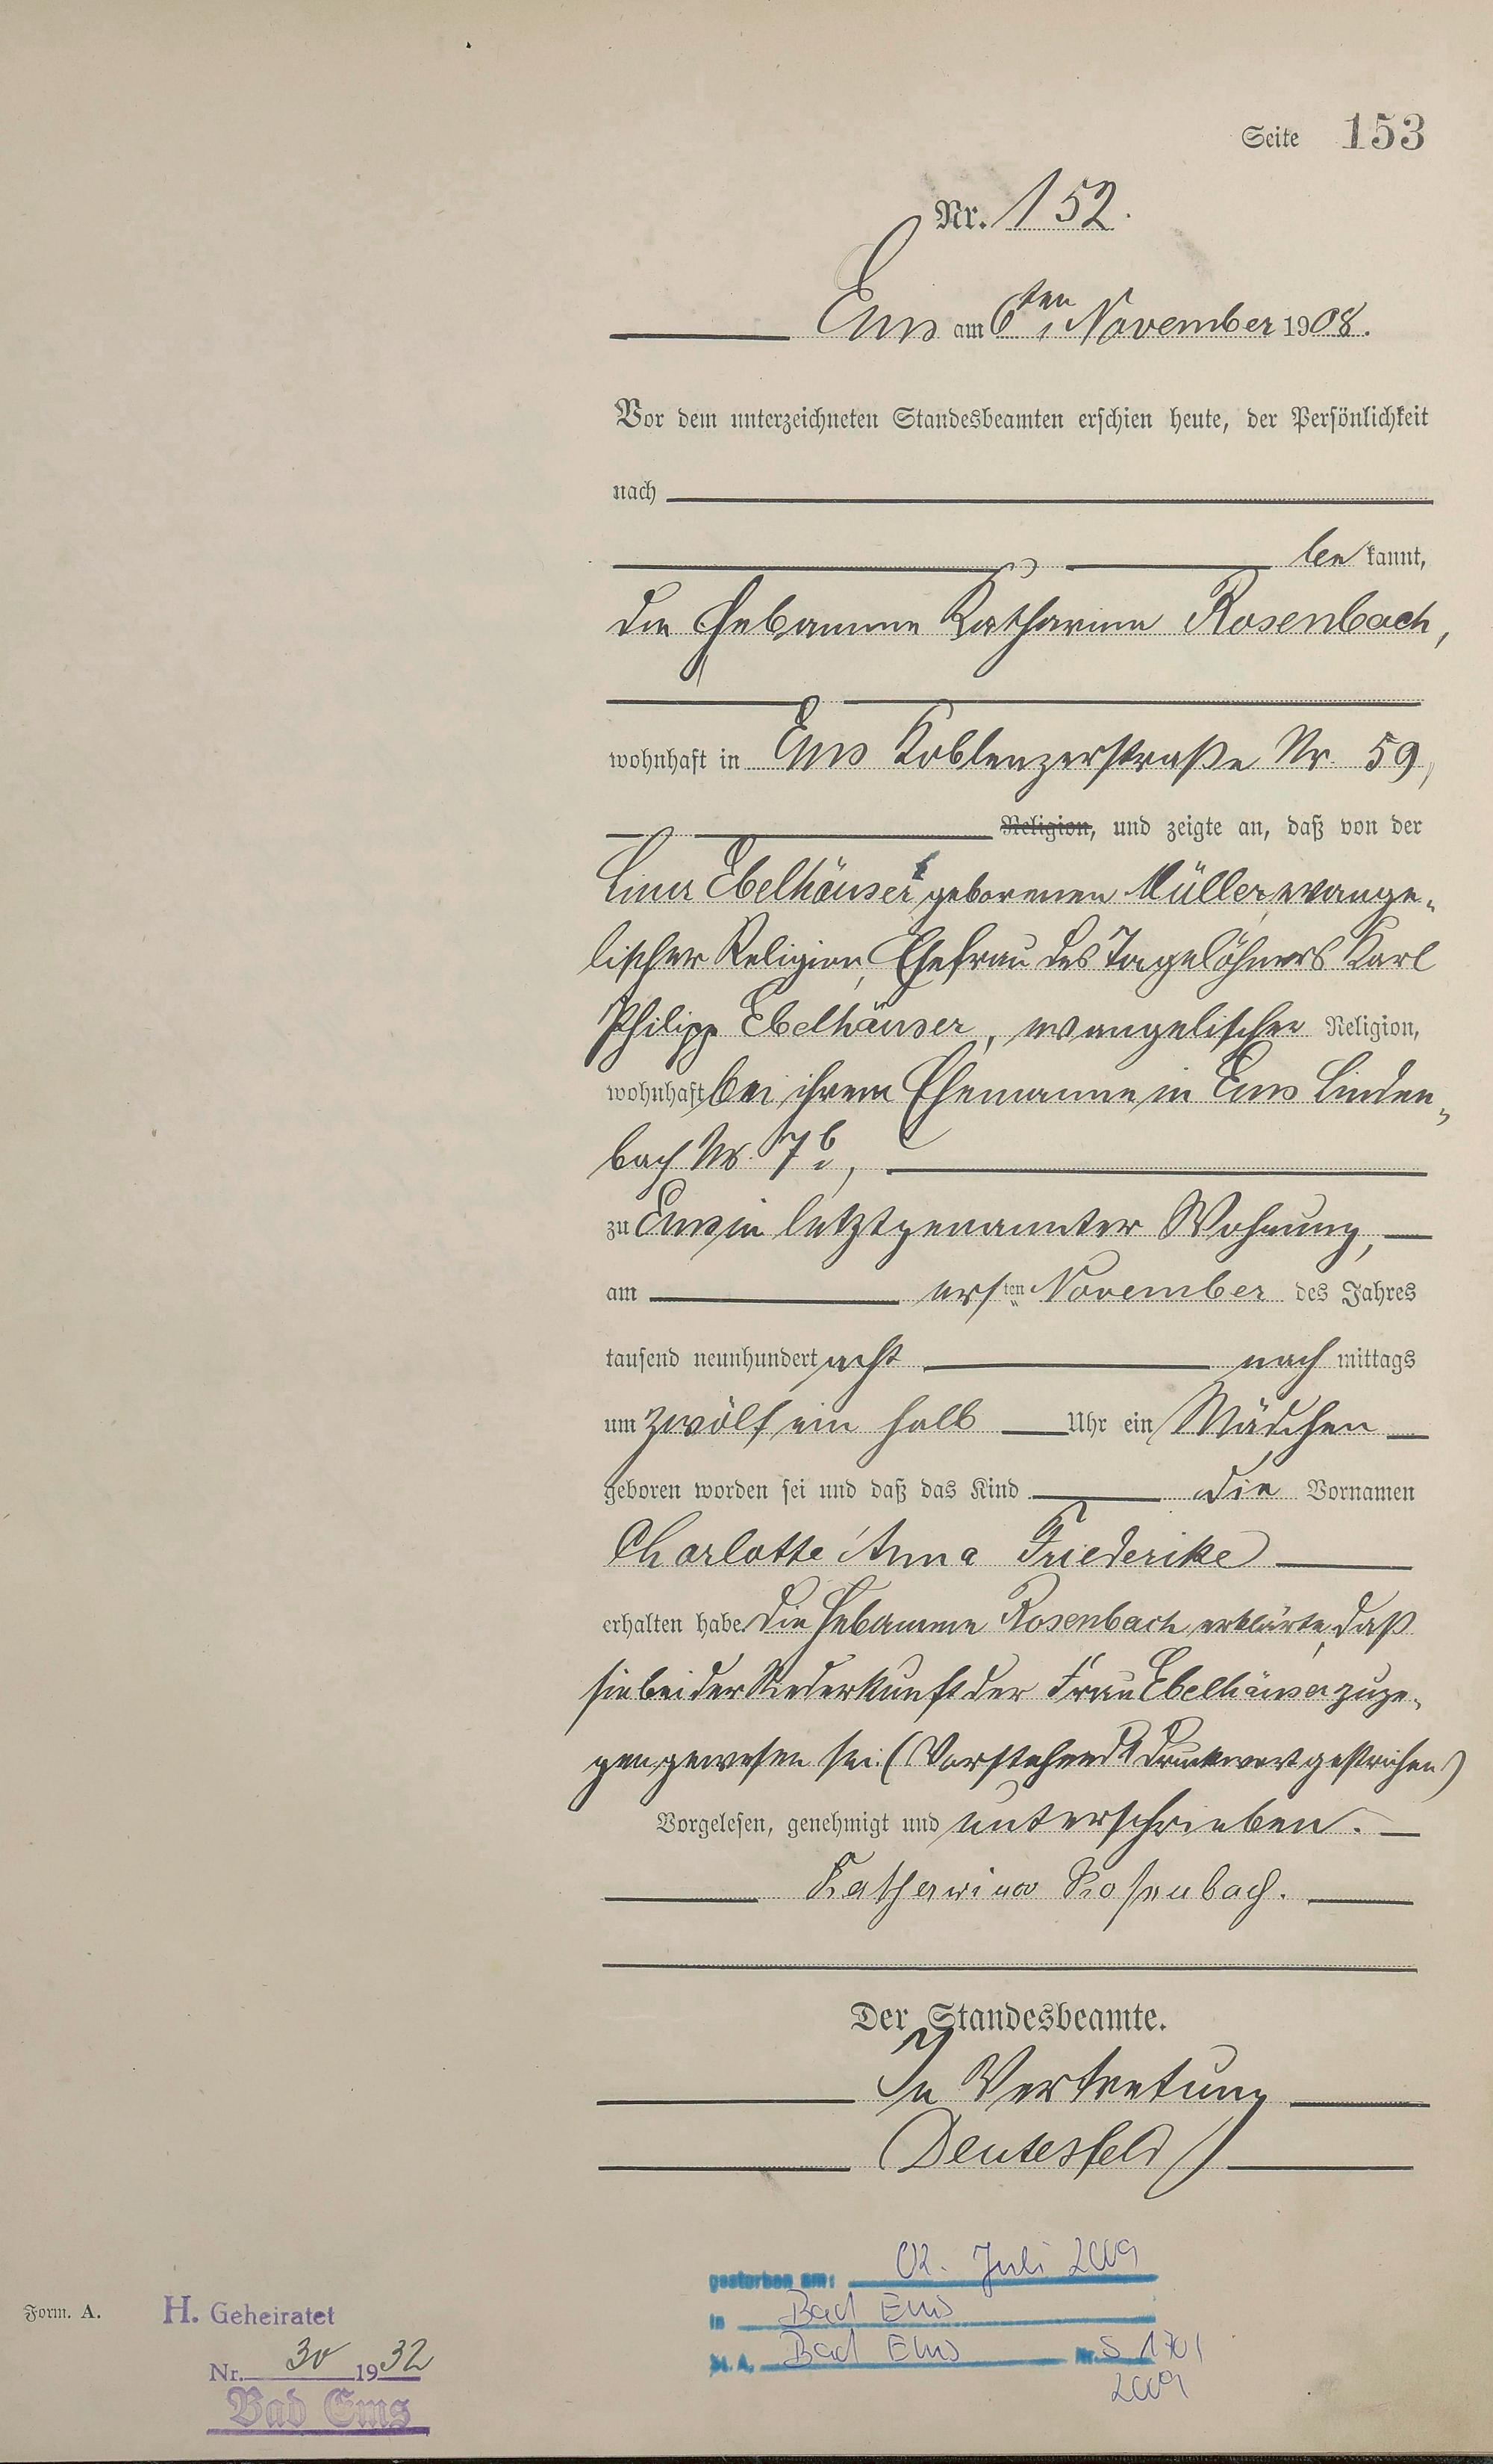 Seite 153
Nr. 152.
Ems am 6ten November 1908.
Vor dem unterzeichneten Standesbeamten erschien heute, der Persönlichkeit
nach
be kannt,
die Hebamme Katharina Rosenbach,
wohnhaft in Ems Koblenzerstraße Nr. 59,
Religion, und zeigte an, daß von der
Lina Ebelhäuser geborenen Müller, evange-
lischer Religion, Ehefrau des Tagelöhners Karl
Philipp Ebelhäuser, evangelischer Religion,
wohnhaft bei ihrem Ehemanne in Ems Linden-
bach Nr. 7b,
zu Ems in letztgenannter Wohnung,
am ersten November des Jahres
tausend neunhundert acht nach mittags
um zwölf ein halb Uhr ein Mädchen
geboren worden sei und daß das Kind die Vornamen
Charlotte Anna Friederike
erhalten habe. Die Hebamme Rosenbach erklärte, daß
sie bei der Niederkunft der Frau Ebelhäuser zuge-
gen gewesen sei. (Vorstehend 1 Druckwort gestrichen)
Vorgelesen, genehmigt und unterschrieben.
Katharina Rosenbach.
Der Standesbeamte.
In Vertretung
Deutesfeld
gestorben am: 02. Juli 2009
in Bad Ems
St. A. Bad Ems Nr. S 170/
2009
Form. A.
H. Geheiratet
Nr. 30 1932
Bad Ems